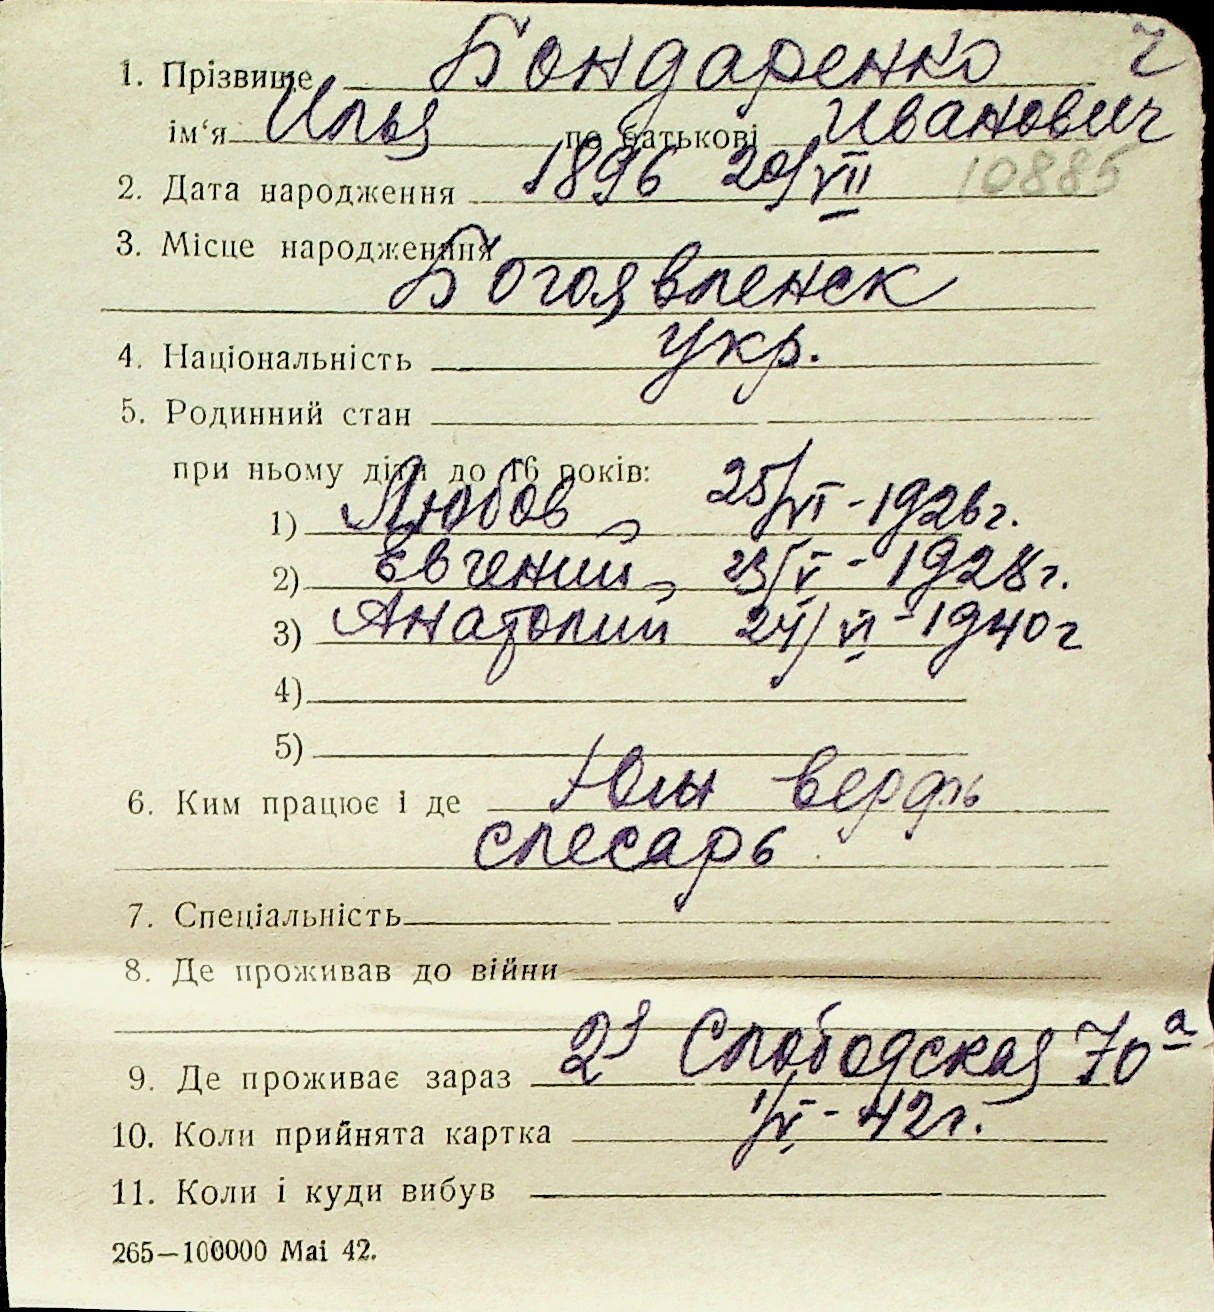 1. Прізвище Бондаренко
ім'я Илья по батькові Иванович
2. Дата народження 1896 20/VII 10885
3. Місце народження
Богоявленск
4. Національність укр.
5. Родинний стан
при ньому діти до 16 років:
1) Любов 25/VI - 1926г.
2) Евгений, 23/V - 1928г.
3) Анатолий 24/VI - 1940г
4)
5)
6. Ким працює і де Южн верфь
слесарь
7. Спеціальність
8. Де проживав до війни
9. Де проживає зараз 2я Слободская 70а
10. Коли прийнята картка 1/V - 42г.
11. Коли і куди вибув
265—100000 Mai 42.